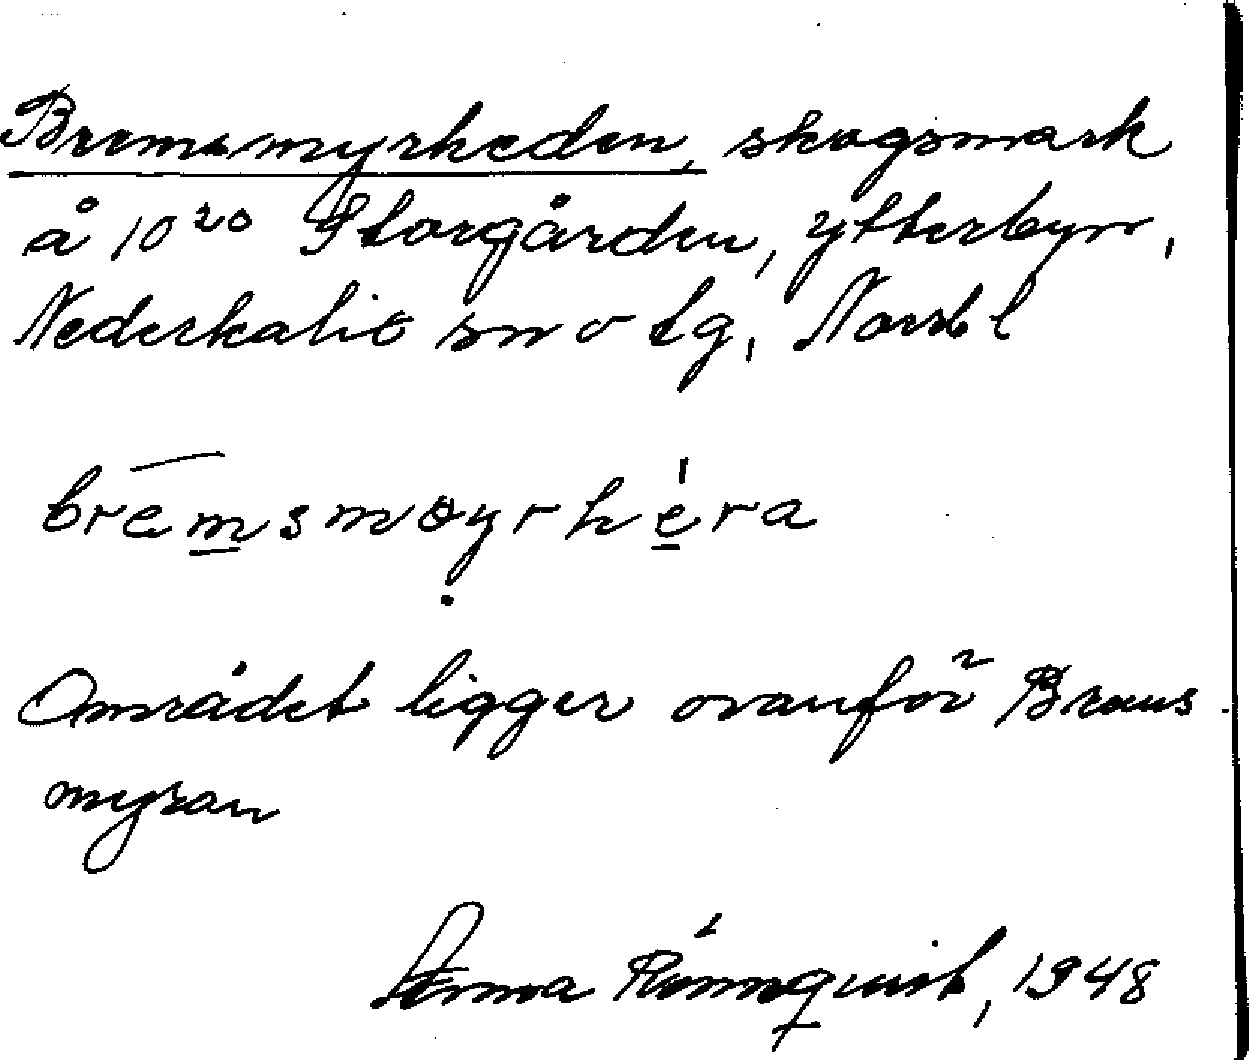 Bremsmyrheden, skogsmark
å 10²⁰ Storgården, Ytterbyn,
Nederkalix sn o tg, Norrb l
Området ligger ovanför Brems-
myran
Rönnquist, 1948